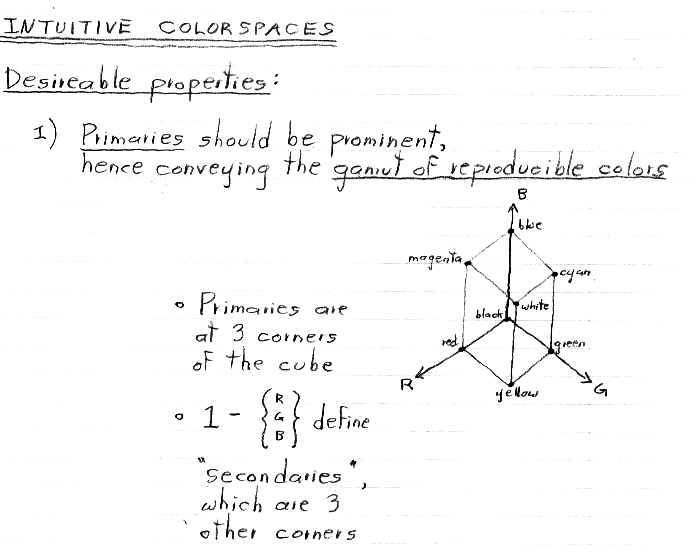 INTUITIVE COLORSPACES
Desireable properties:
1) Primaries should be prominent,
hence conveying the gamut of reproducible colors
B
blue
magenta
cyan
white
black
red
green
R
yellow
G
• Primaries are
at 3 corners
of the cube
• 1 - { R G B } define
"secondaries",
which are 3
other corners